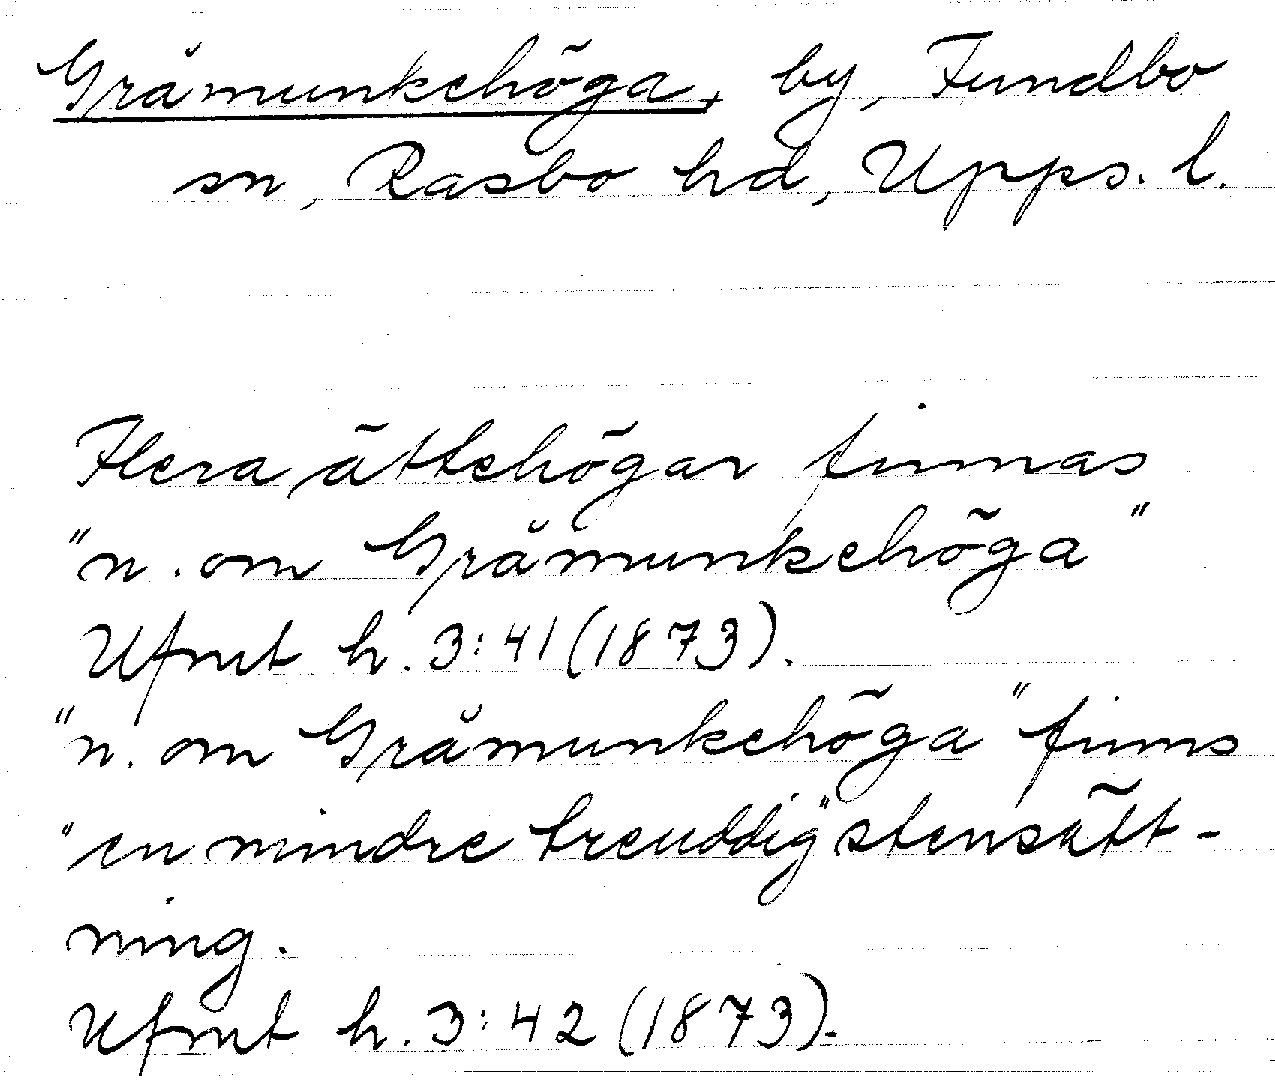 Gråmunkehöga, by, Fundbo
sn, Rasbo hd, Upps. l.
Flera ättehögar finnas
"n. om Gråmunkehöga"
Ufmt h. 3:41 (1873).
"n. om Gråmunkehöga" finns
"en mindre treuddig" stensätt-
ning.
Ufmt h. 3:42 (1873).